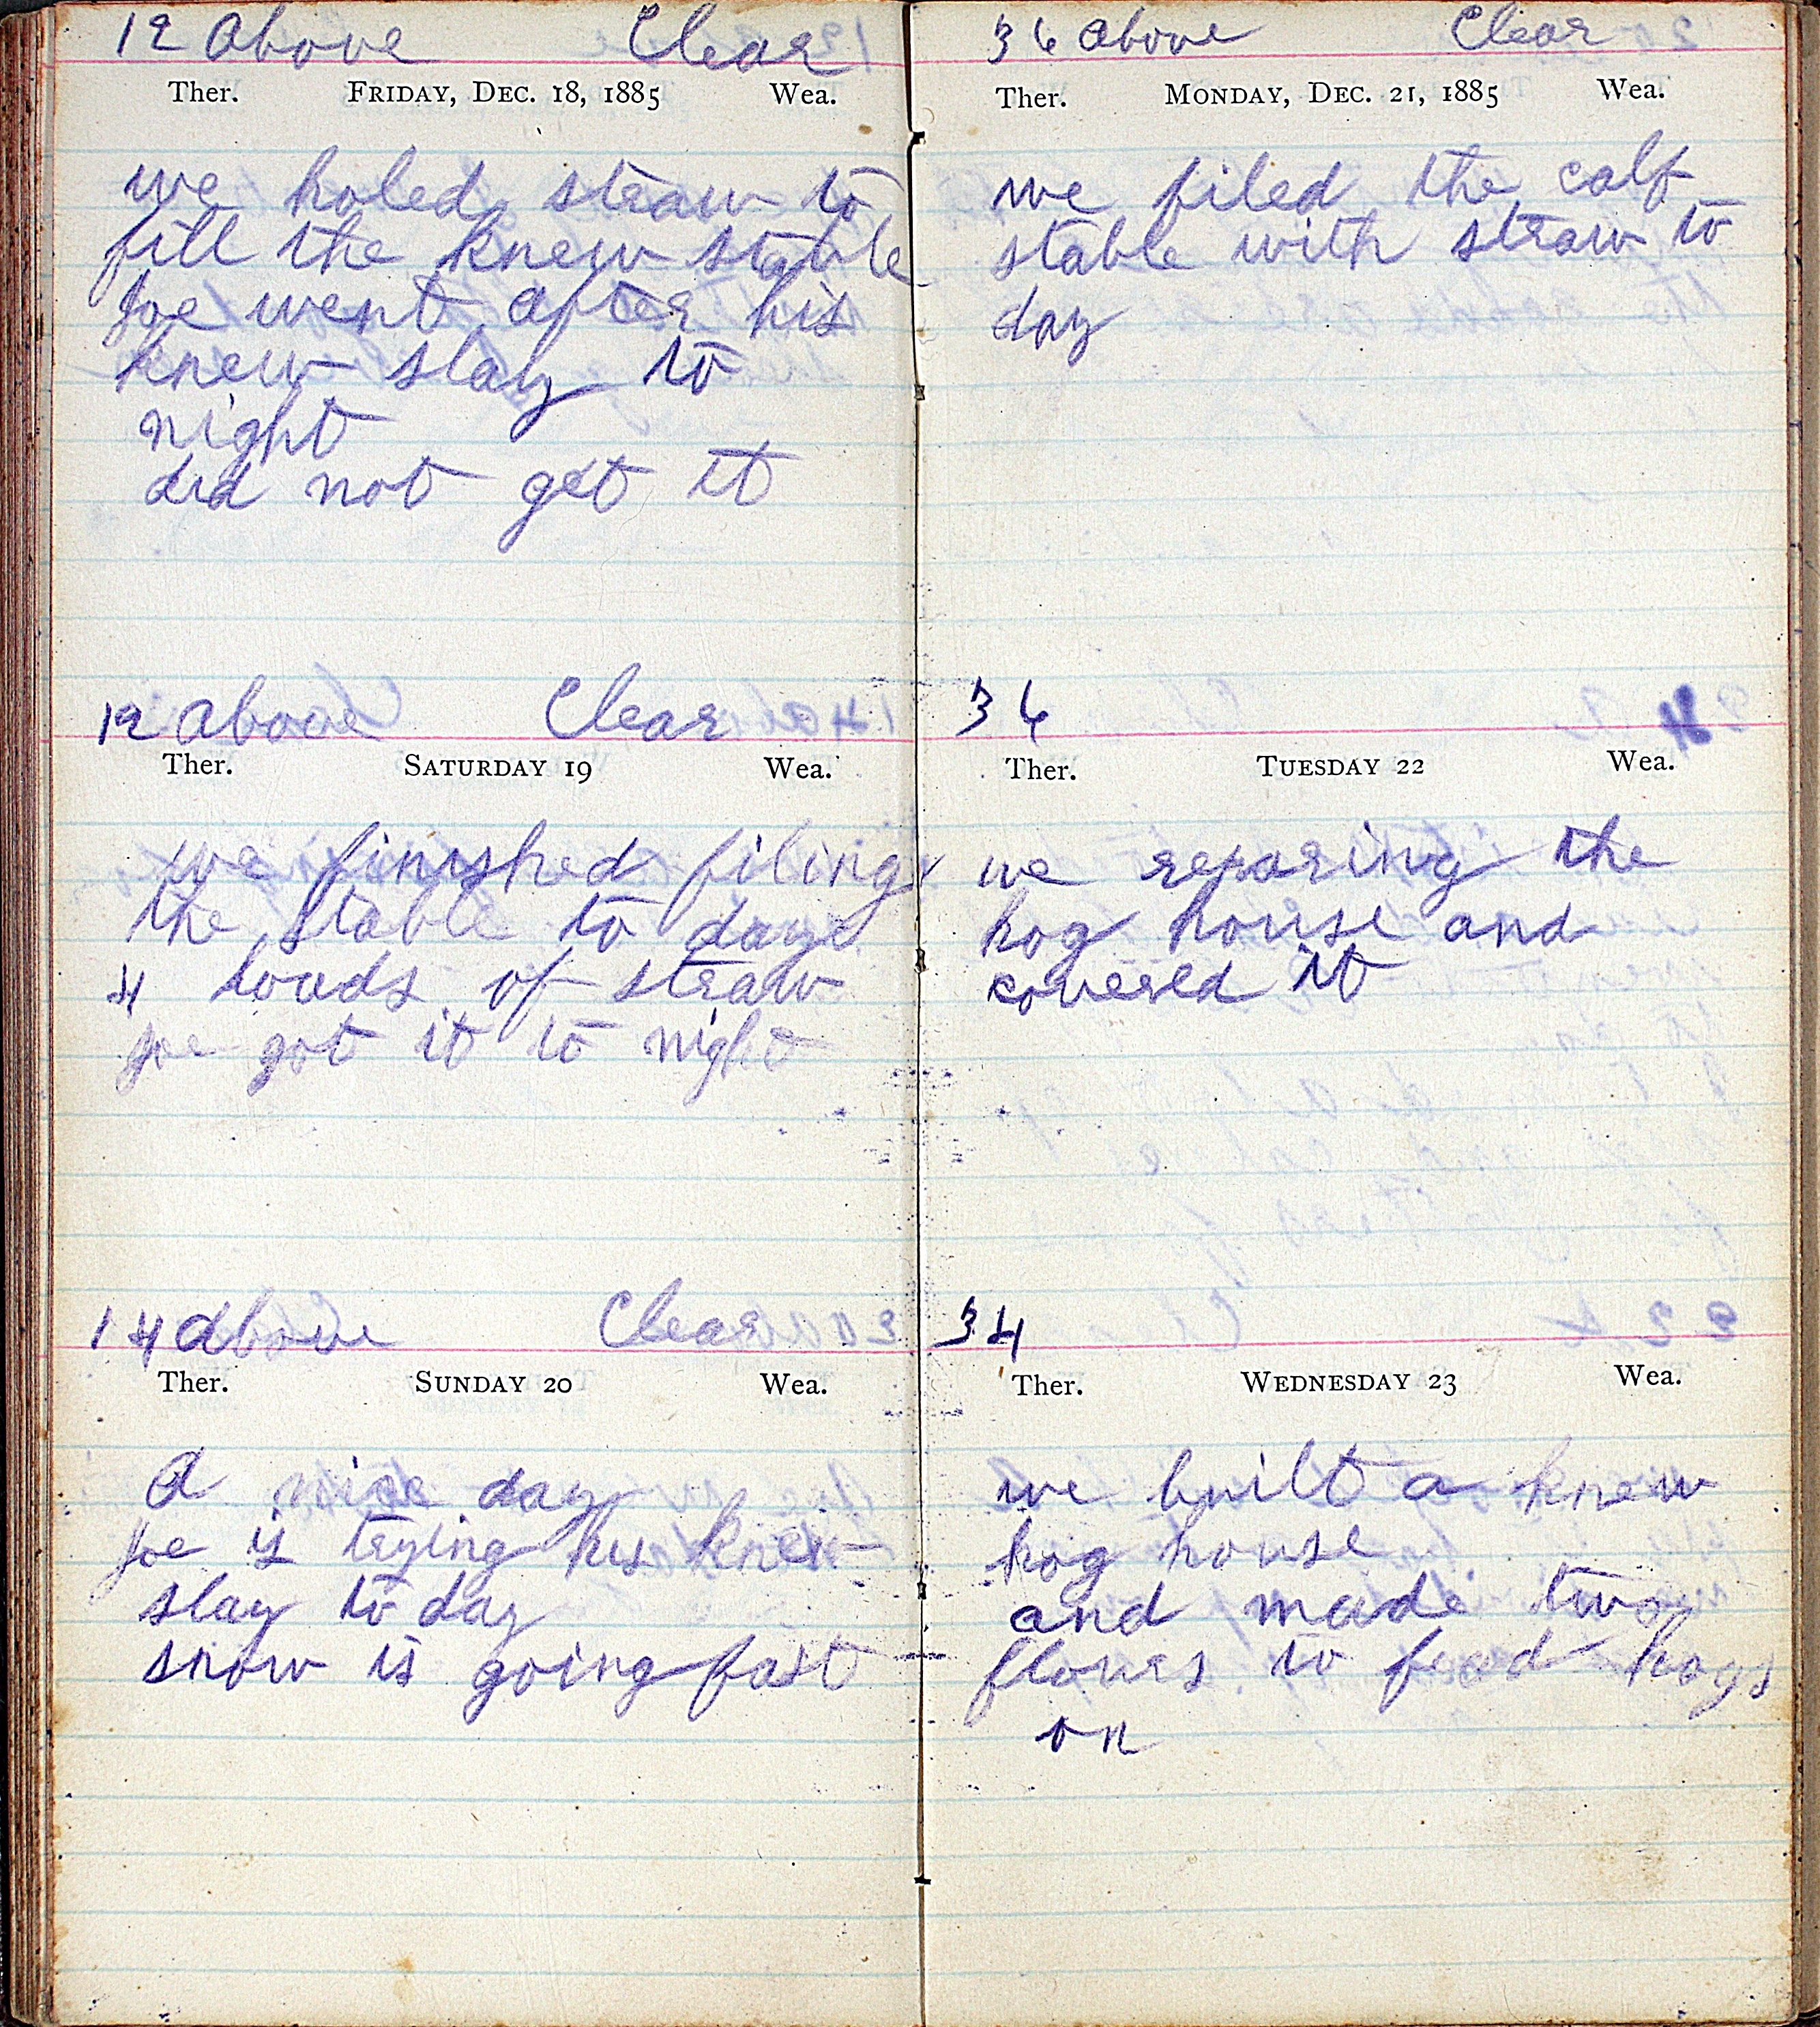 12 above Clear
Ther. Friday, Dec. 18, 1885 Wea.
we holed straw to
fill the knew stable
Joe went after his
knew slay to
night
did not get it
12 above Clear
Ther. Saturday 19 Wea.
we finished filing
the stable to day
4 loads of straw
Joe got it to night
14 above Clear
Ther. Sunday 20 Wea.
A nice day
Joe is trying his knew
slay to day
snow is going fast
36 above Clear
Ther. Monday, Dec. 21, 1885 Wea.
we filed the calf
stable with straw to
day
36
Ther. Tuesday 22 Wea.
we reparing the
hog house and
covered it
34
Ther. Wednesday 23 Wea.
we built a knew
hog house
and made two
flours to fead hogs
on